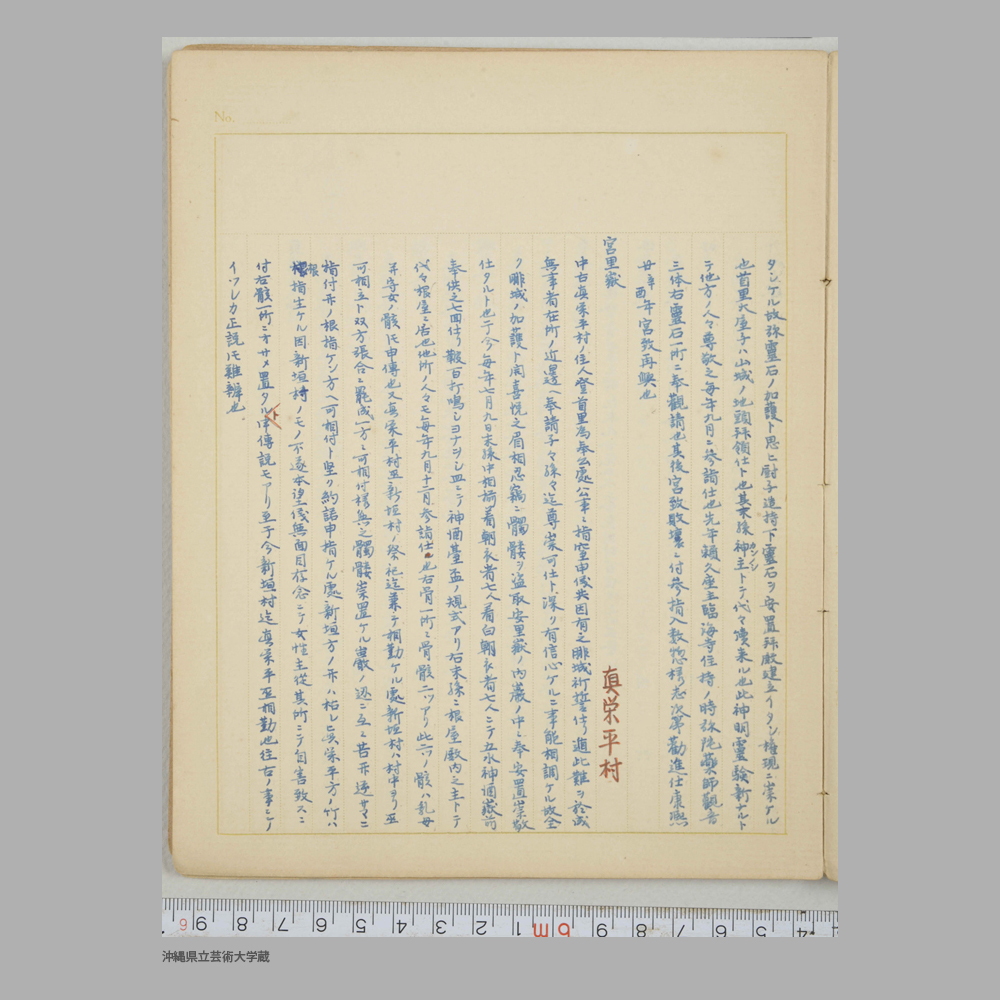 No.
タンケル故弥靈石ノ加護ト思ヒ厨子追持下靈石ヲ安置拜殿建立イタシ權現ニ崇ケル
也首里大屋子ハ山城ノ地頭拜領仕ト也其末孫神主トテ代々續来ル也此神明靈験新ナルト
カンヌシ
テ他方ノ人々尊敬之毎年九月ニ參詣仕也先年頼久座主臨海寺住持ノ時弥陀藥師觀音
三体右靈石一所ニ奉觀請也其後宮致敗壞ニ付參指入数惣様志次第勸進仕康熙
廿辛酉年宮致再興也
宮里嶽
真栄平村
中古真栄平村ノ住人登首里為奉公處公事ニ指空申候共因有之 城祈誓仕り遁此難ヲ於成
無事者在所ノ近邊ヘ奉請子々孫々迄尊崇可仕ト深ク有信心ケルニ事能相調ケル故全
ク 城ノ加護ト開喜悦之眉相忍竊ニ髑髏ヲ盗取安里嶽ノ内巌ノ中ニ奉安置崇敬
仕タルト也于今毎年七月九日末孫中相揃着朝衣者七人着白朝衣者七人ニテ五水神酒嶽前
奉供之七四仕り鞁百打鳴シヨナヲシ皿ニテ神酒臺盃ノ規式アリ右末孫ニ根屋殿内之主トテ
代々根屋ニ居也他所ノ人々モ毎年九月十二月參詣仕也右骨一所ニ骨骸二ツアリ此二ツノ骸ハ乳母
并守女ノ骸ニモ申傳也又真栄平村並新垣村ノ祭祀迄兼テ相勤ケル處新垣村ハ村中ヨリ並
可相立ト双方張合ニ罷成一方ニ可相付様無之髑髏崇置ケル嚴ノ迯ニ玉ニ苦竹逆サマニ
指付竹ノ根指ケン方ヘ可相付ト堅ク約諾申指ケル處新垣方ノ竹ハ枯レ真栄平方ノ竹ハ
根指生ケル因新垣持ノモノ不遂本望侯無面目存念ニテ女性主從其所ニテ自害致スニ
付右骸一所ニオサメ置タルト申傳説モアリ至于今新垣村迄真栄平並相勤也往古ノ事ニテ
イツレカ正説モ難辨也
9 8 7 6 5 4 3 2 1 m 9 8 7 6 5 4
沖縄県立芸術大学蔵